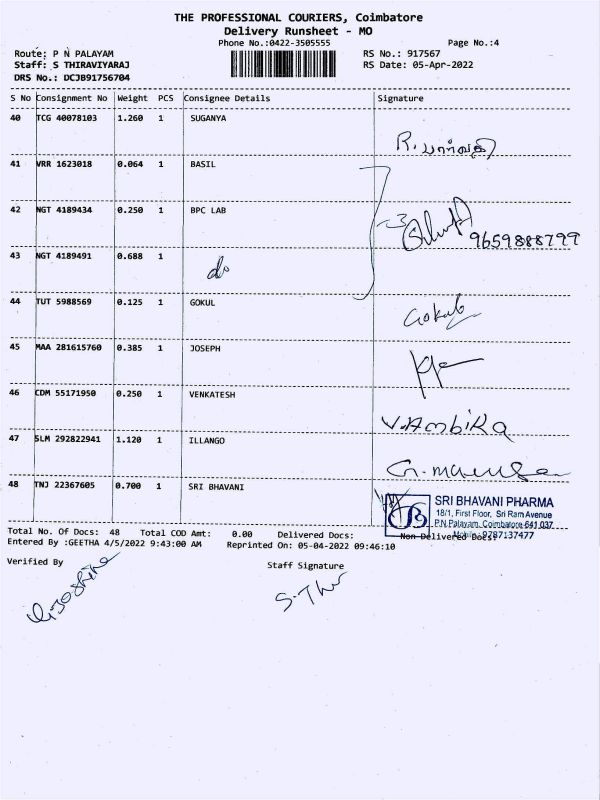 THE PROFESSIONAL COURIERS, Coimbatore
Delivery Runsheet - MO
Phone No.:0422-3505555 Page No.:4
Route: P N PALAYAM RS No.: 917567
Staff: S THIRAVIYARAJ RS Date: 05-Apr-2022
DRS No.: DCJB91756704
S No Consignment No Weight PCS Consignee Details Signature
40 TCG 40078103 1.260 1 SUGANYA
R. பார்வதி
41 VRR 1623018 0.064 1 BASIL
42 NGT 4189434 0.250 1 BPC LAB
9659888799
43 NGT 4189491 0.688 1 do
44 TUT 5988569 0.125 1 GOKUL Gokul
45 MAA 281615760 0.385 1 JOSEPH
46 CDM 55171950 0.250 1 VENKATESH V.AmbiKa
47 SLM 292822941 1.120 1 ILLANGO
48 TNJ 22367605 0.700 1 SRI BHAVANI
SRI BHAVANI PHARMA
18/1, First Floor, Sri Ram Avenue
P.N.Palayam, Coimbatore-641 037.
Mobile: 9787137477
Total No. Of Docs: 48 Total COD Amt: 0.00 Delivered Docs: Non-Delivered Docs:
Entered By :GEETHA 4/5/2022 9:43:00 AM Reprinted On: 05-04-2022 09:46:10
Verified By Staff Signature